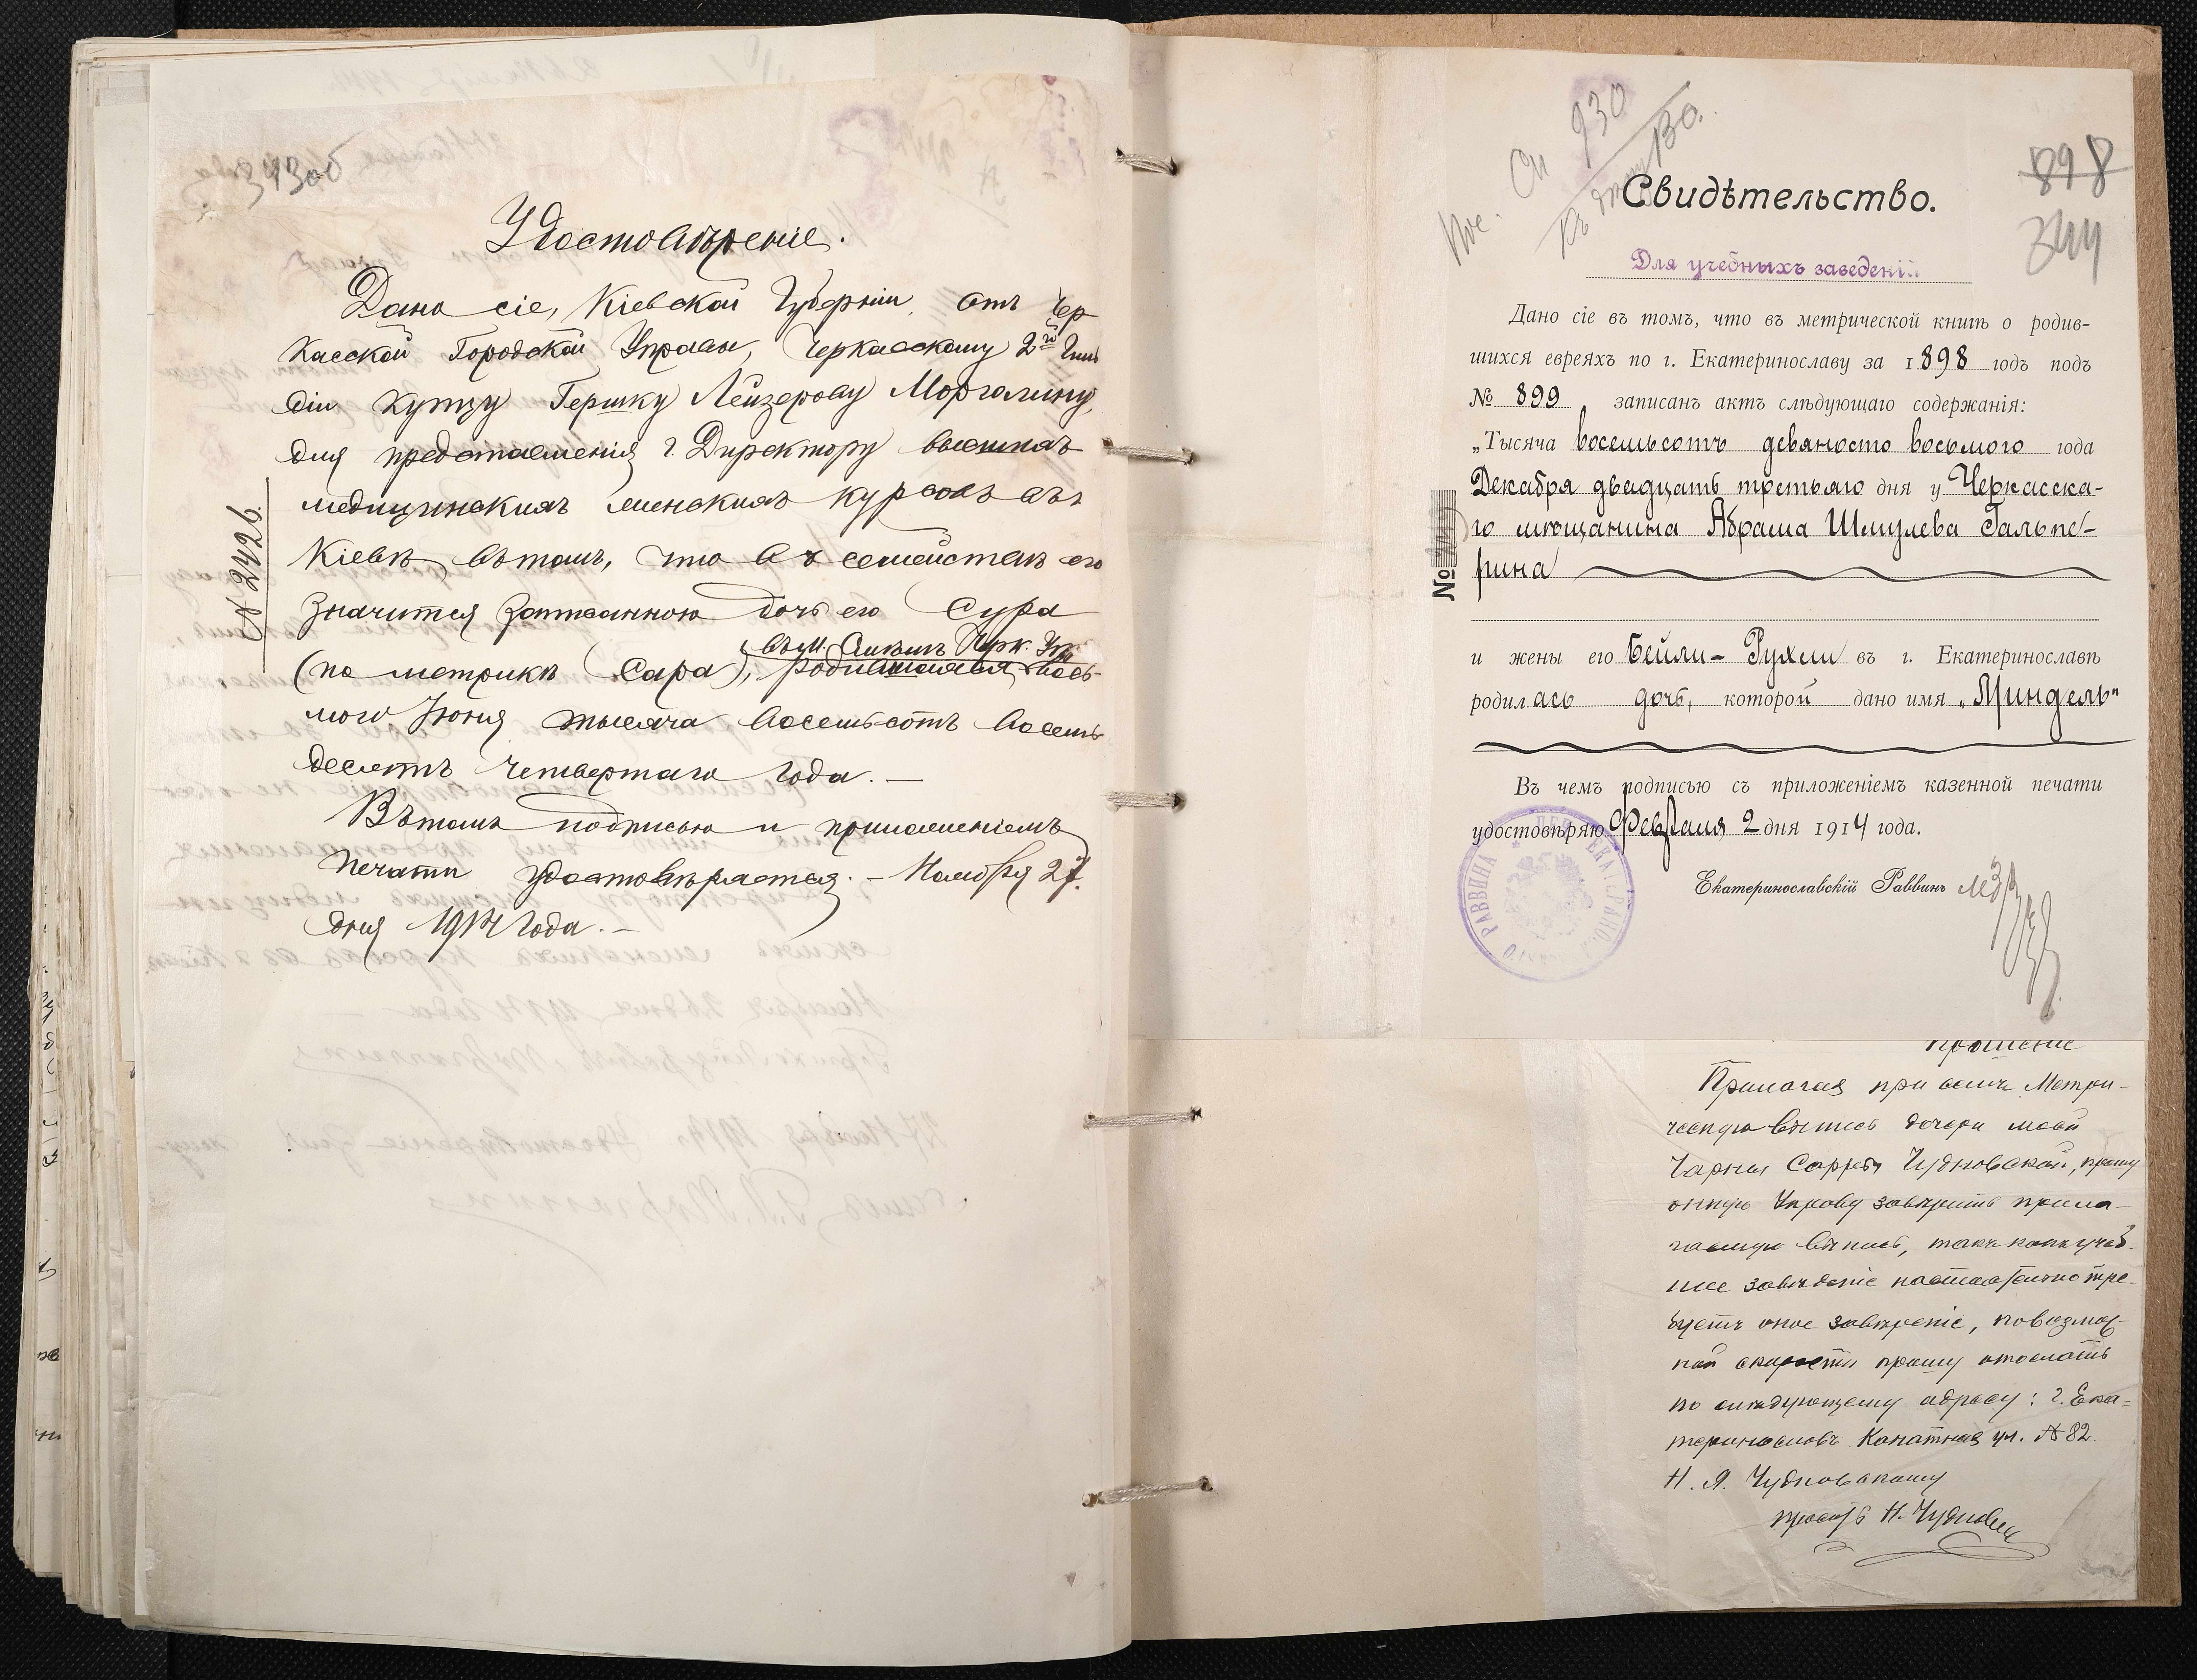 343об
Удостовѣреніе.
№ 2426.
Дано сіе, Кіевской Губерніи, отъ Чер
касской Городской Управы, Черкасскому 2й Гиль
діи Купцу Гершку Лейзерову Морголину,
для представленія г. Директору высшихъ
медицинскихъ женскихъ курсовъ въ г.
Кіевѣ въ томъ, что въ семействѣ его
значится записанною дочь его Сура
(по метрикѣ Сара), родившаяся вось-
мого Іюня тысяча восемьсотъ восемь
десятъ четвертаго года. —
Въ томъ подписью и приложеніемъ
печати удостовѣряется. — Ноября 27.
дня 1914 года. —
930
898
344
Свидѣтельство.
Для учебныхъ заведеній
Дано сіе въ томъ, что въ метрической книгѣ о родив-
шихся евреяхъ по г. Екатеринославу за 1898 годъ подъ
№ 899 записанъ актъ слѣдующаго содержанія:
„Тысяча восемьсотъ девяносто восьмого года
Декабря двадцать третьяго дня у Черкасска-
го мѣщанина Абрама Шмулева Гальпе-
рина
№
и жены его Бейли-Рухли въ г. Екатеринославѣ
родилась дочь, которой дано имя „Миндель"
Въ чемъ подписью съ приложеніемъ казенной печати
удостовѣряю Февраля 2 дня 1914 года.
Екатеринославскій Раввинъ
РАВВИНА
Прошеніе
Прилагая при семъ Метри-
ческую выпись дочери моей
Чарны Сарры Чудновской, прошу
онную Управу завѣрить прила-
гаемую выпись, такъ какъ учеб-
ное завѣденіе настоятельно тре-
буетъ оное завѣреніе, по возмож-
ной скорости прошу отослать
по слѣдующему адресу: г. Ека-
теринославъ Канатная ул. № 82.
Н. Я. Чудновскому
Н. Чудновск